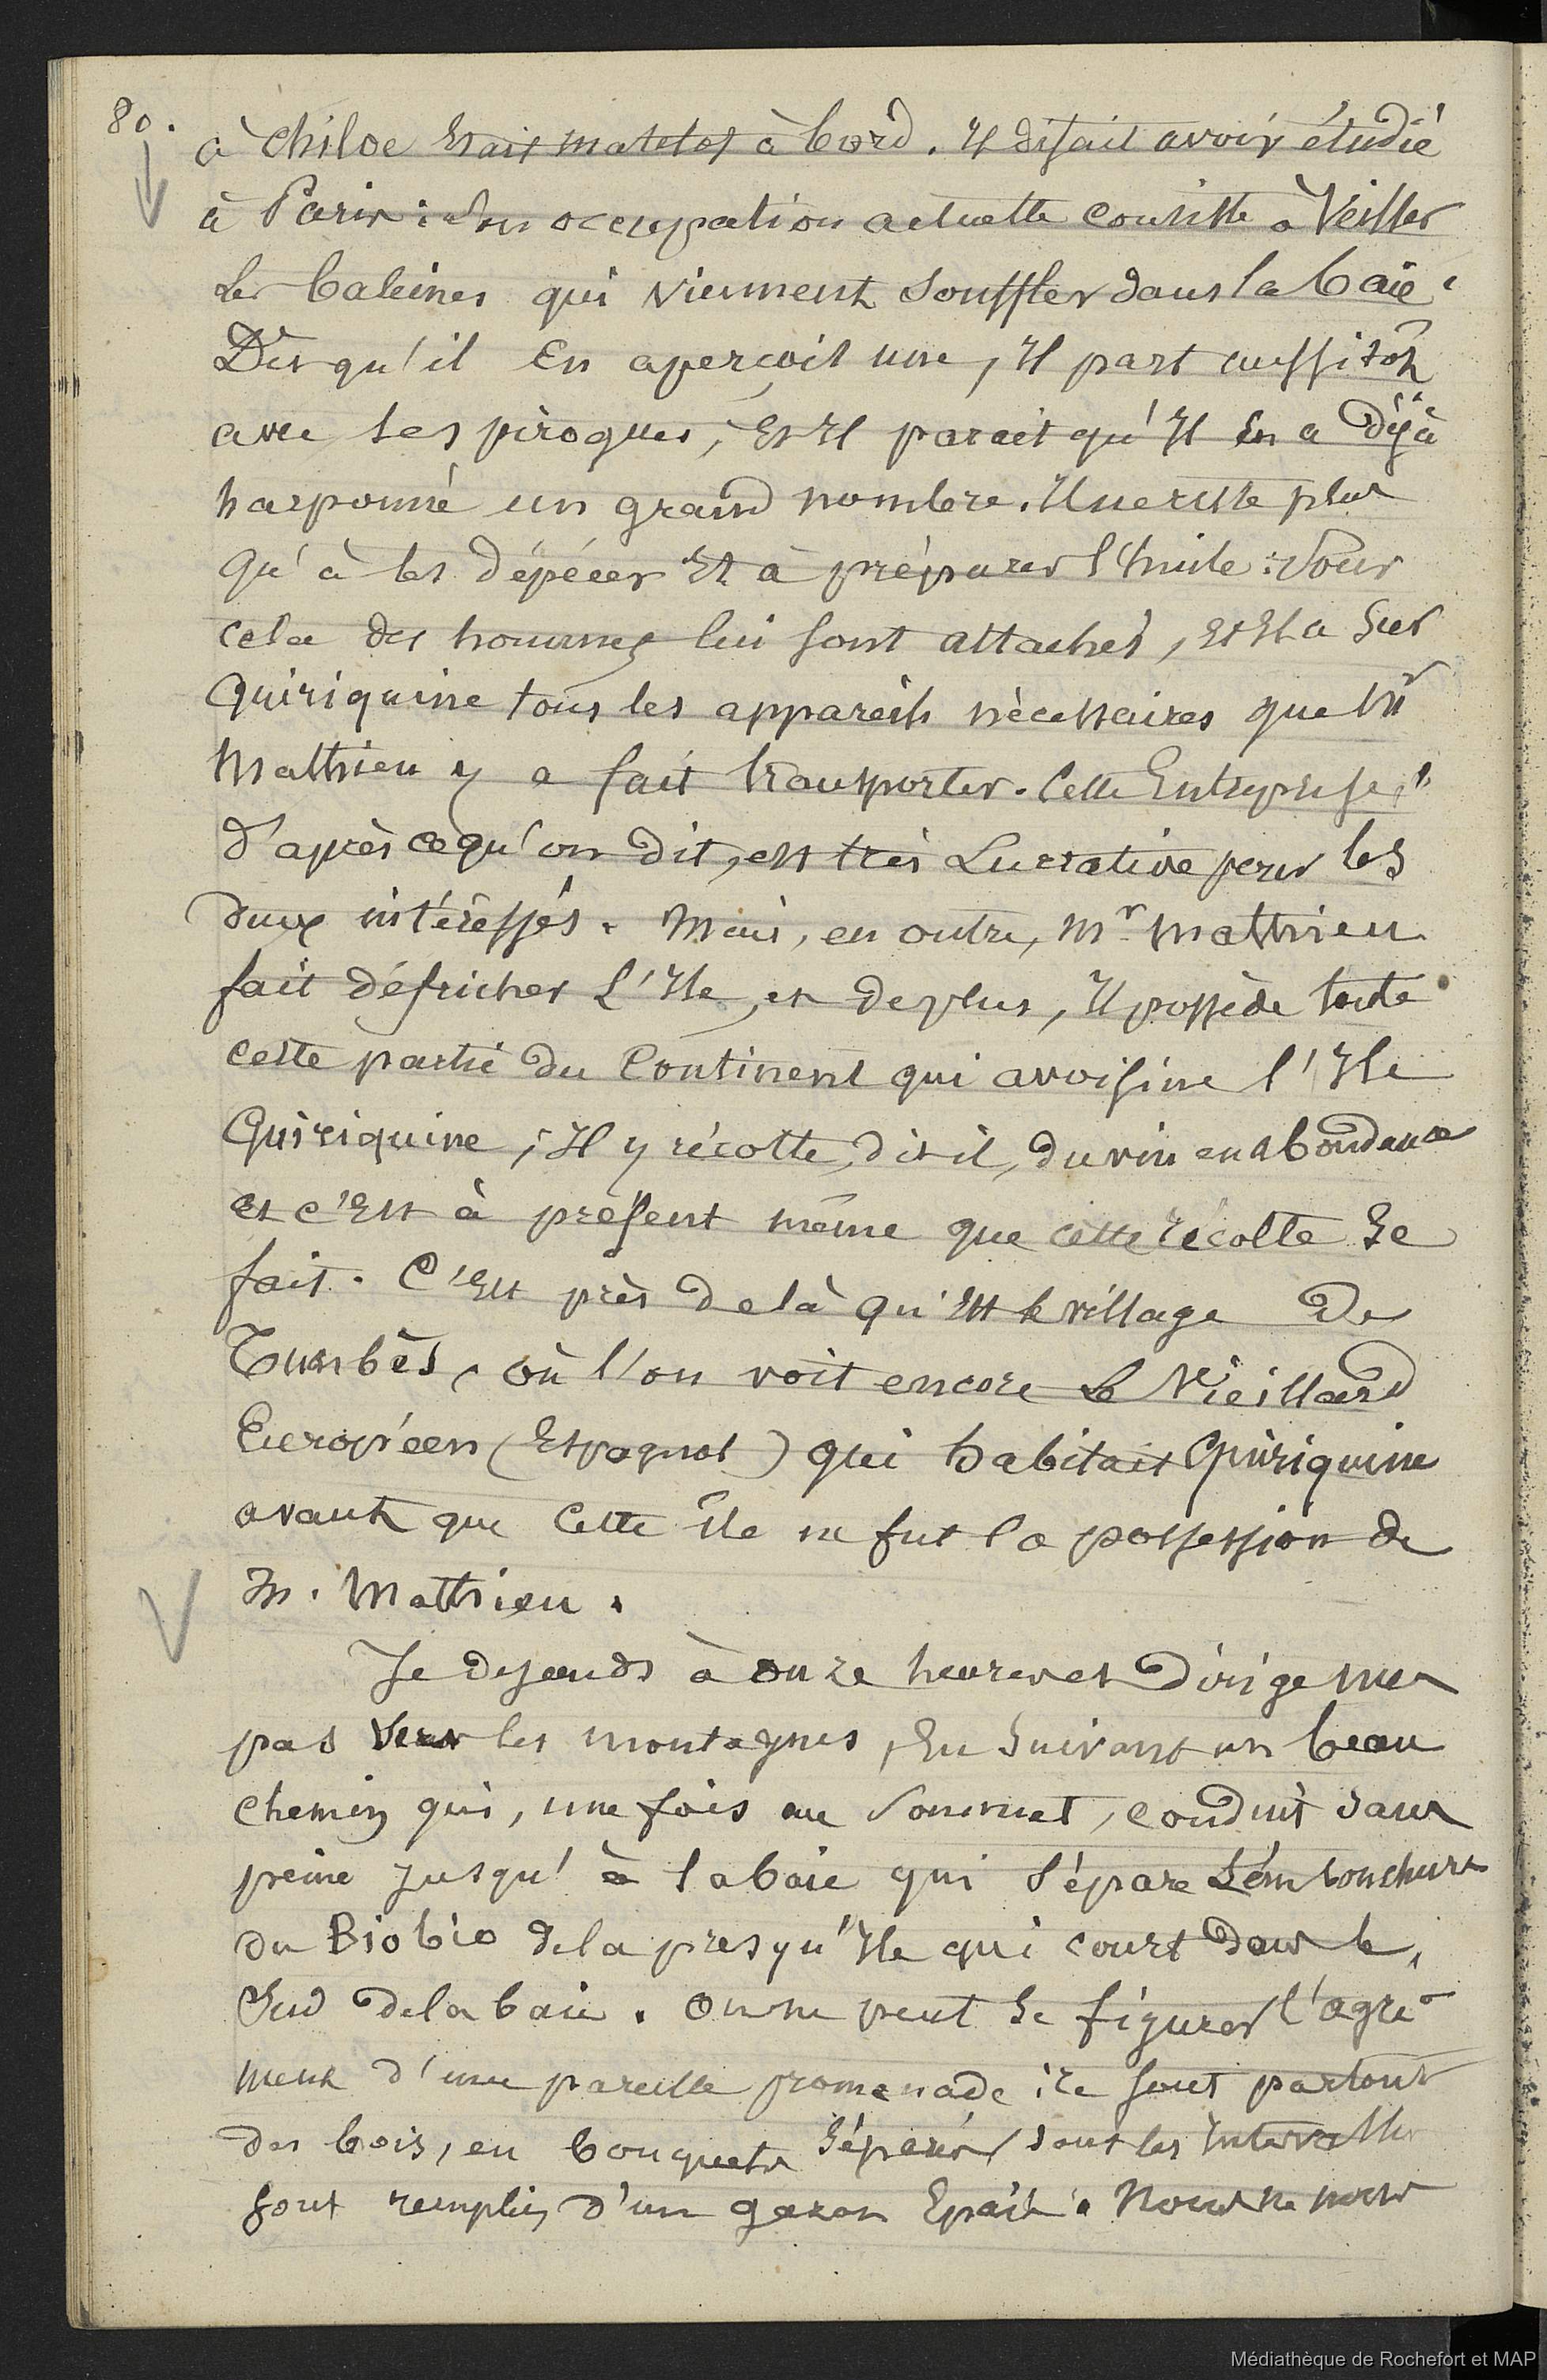 80.
à Chiloe était matelot à bord. Il disait avoir étudié
à Paris : son occupation actuelle consiste à veiller
les baleines qui viennent souffler dans la baie.
Dès qu'il en aperçoit une, il part aussitôt
avec ses pirogues, et il parait qu'il en a déjà
harponné un grand nombre. Il ne reste plus
qu'à les dépécer et à préparer l'huile : pour
cela des hommes lui sont attachés, et il a sur
Quiriquine tous les appareils nécessaires que Mr
Matthieu y a fait transporter. Cette Entreprise,
d'après ce qu'on dit, est très Lucrative pour les
deux intéressés. Mais, en outre, Mr Matthieu
fait défricher l'Ile, et de plus, il possède toute
cette partie du Continent qui avoisine l'Ile
Quiriquine ; il y récolte, dit-il, du vin en abondance
et c'est à présent même que cette récolte se
fait. C'est près de là qu'est le village de
Tumbès, où l'on voit encore le vieillard
Européen (Espagnol) qui habitait Quiriquine
avant que cette île ne fut la possession de
M. Matthieu.
Je descends à onze heures et dirige mes
pas vers les montagnes, en suivant un beau
chemin qui, une fois au sommet, conduit sans
peine jusqu'à la baie qui sépare l'embouchure
du Biobio de la presqu'Ile qui court dans le
Sud de la baie. On ne peut se figurer l'agré-
ment d'une pareille promenade : ce sont partout
des bois, en bouquets séparés dont les intervalles
sont remplis d'un gazon épais. Nous ne nous
Médiathèque de Rochefort et MAP